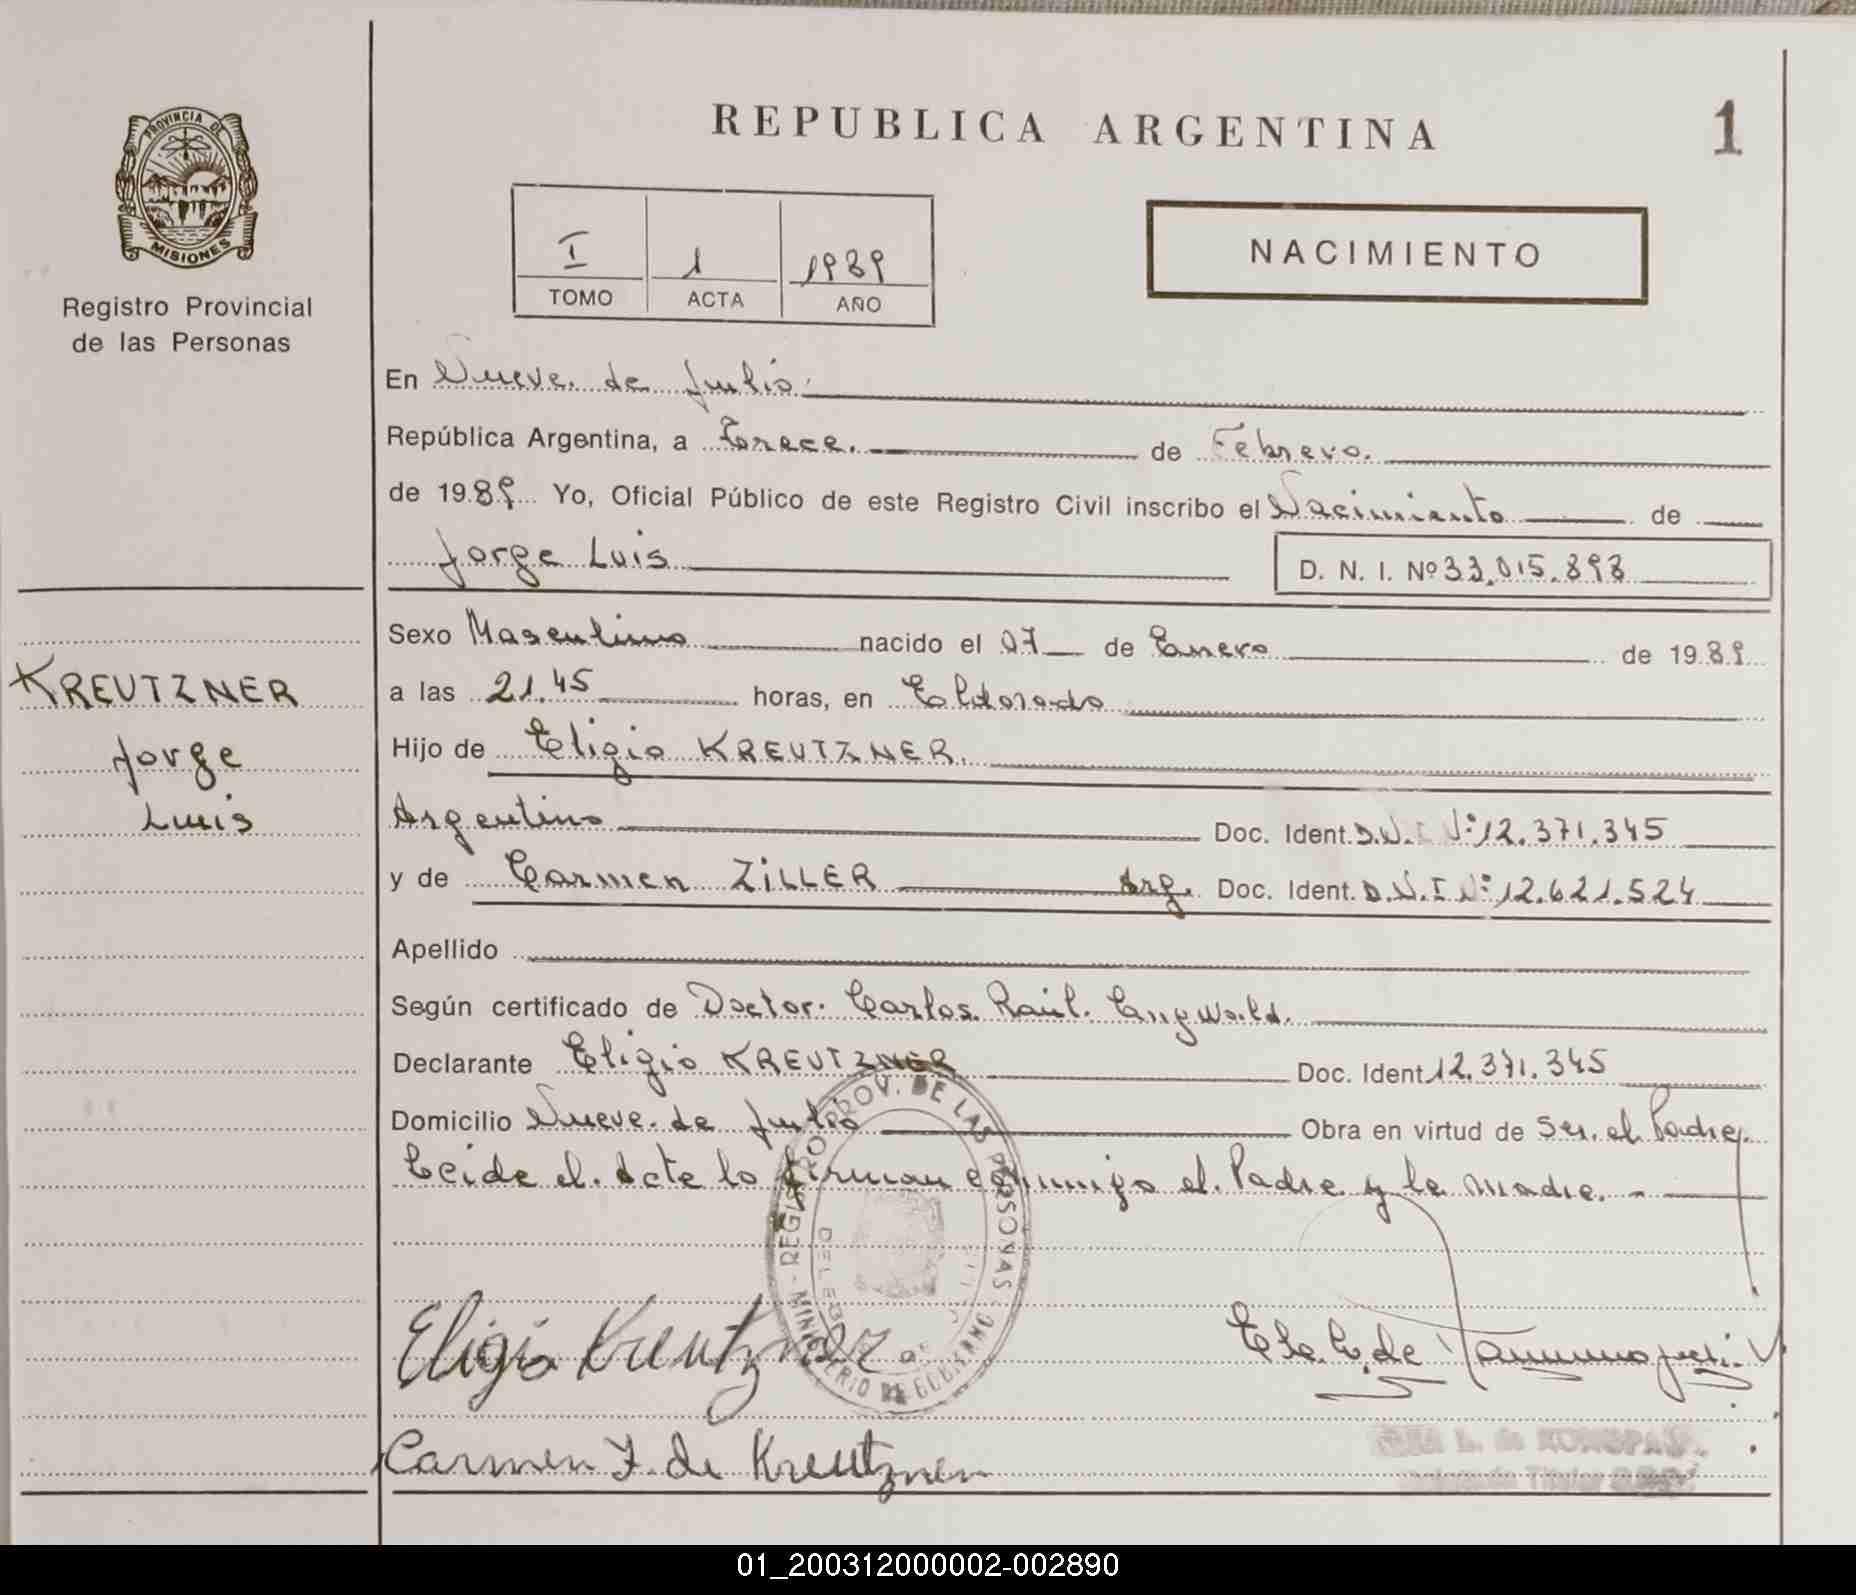 REPUBLICA ARGENTINA
1
PROVINCIA DE
MISIONES
Registro Provincial
de las Personas
I 1 1989
TOMO ACTA AÑO
NACIMIENTO
En Nueve de Julio
República Argentina, a Trece. de Febrero.
de 1989 Yo, Oficial Público de este Registro Civil inscribo el Nacimiento de
Jorge Luis D. N. I. Nº 33.015.898
Sexo Masculino nacido el 07 de Enero de 1989
a las 21.45 horas, en Eldorado
Hijo de Eligio KREUTZNER.
Argentino Doc. Ident. D.N.I Nº 12.371.345
y de Carmen ZILLER Arg. Doc. Ident. D.N.I Nº 12.621.524
Apellido
Según certificado de Doctor. Carlos Raúl.
Declarante Eligio KREUTZNER Doc. Ident 12.371.345
Domicilio Nueve de Julio Obra en virtud de Ser el Padre
Leida el Acta lo firman conmigo el Padre y la Madre.
KREUTZNER
Jorge
Luis
REGISTRO PROV. DE LAS PERSONAS
MINISTERIO DE GOBIERNO
Eligio Kreutzner
Carmen Z. de Kreutzner
01_200312000002-002890